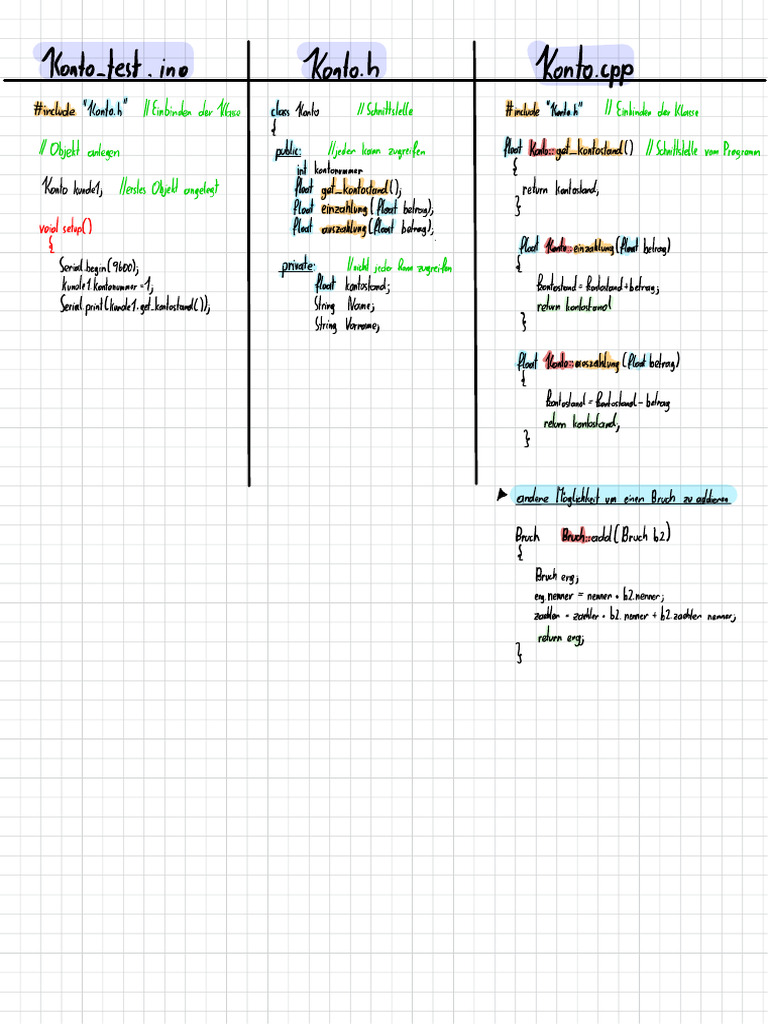 Konto_test.ino
#include "Konto.h" // Einbinden der Klasse
// Objekt anlegen
Konto kunde1; //erstes Objekt angelegt
void setup()
{
Serial.begin(9600);
kunde1.kontonummer=1;
Serial.print(kunde1.get_kontostand());
Konto.h
class Konto //Schnittstelle
{
public: //jeder kann zugreifen
int kontonummer
float get_kontostand();
float einzahlung(float betrag);
float auszahlung(float betrag);
private: //nicht jeder kann zugreifen
float kontostand;
String Name;
String Vorname;
Konto.cpp
#include "Konto.h" // Einbinden der Klasse
float Konto::get_kontostand() // Schnittstelle vom Programm
{
return kontostand;
}
float Konto::einzahlung(float betrag)
{
Kontostand = Kontostand + betrag;
return kontostand
}
float Konto::auszahlung(float betrag)
{
Kontostand = Kontostand - betrag
return kontostand;
};
andere Möglichkeit um einen Bruch zu addieren
Bruch Bruch::add(Bruch b2)
{
Bruch erg;
erg.nenner = nenner * b2.nenner;
zaehler = zaehler * b2.nenner + b2.zaehler nenner;
return erg;
}